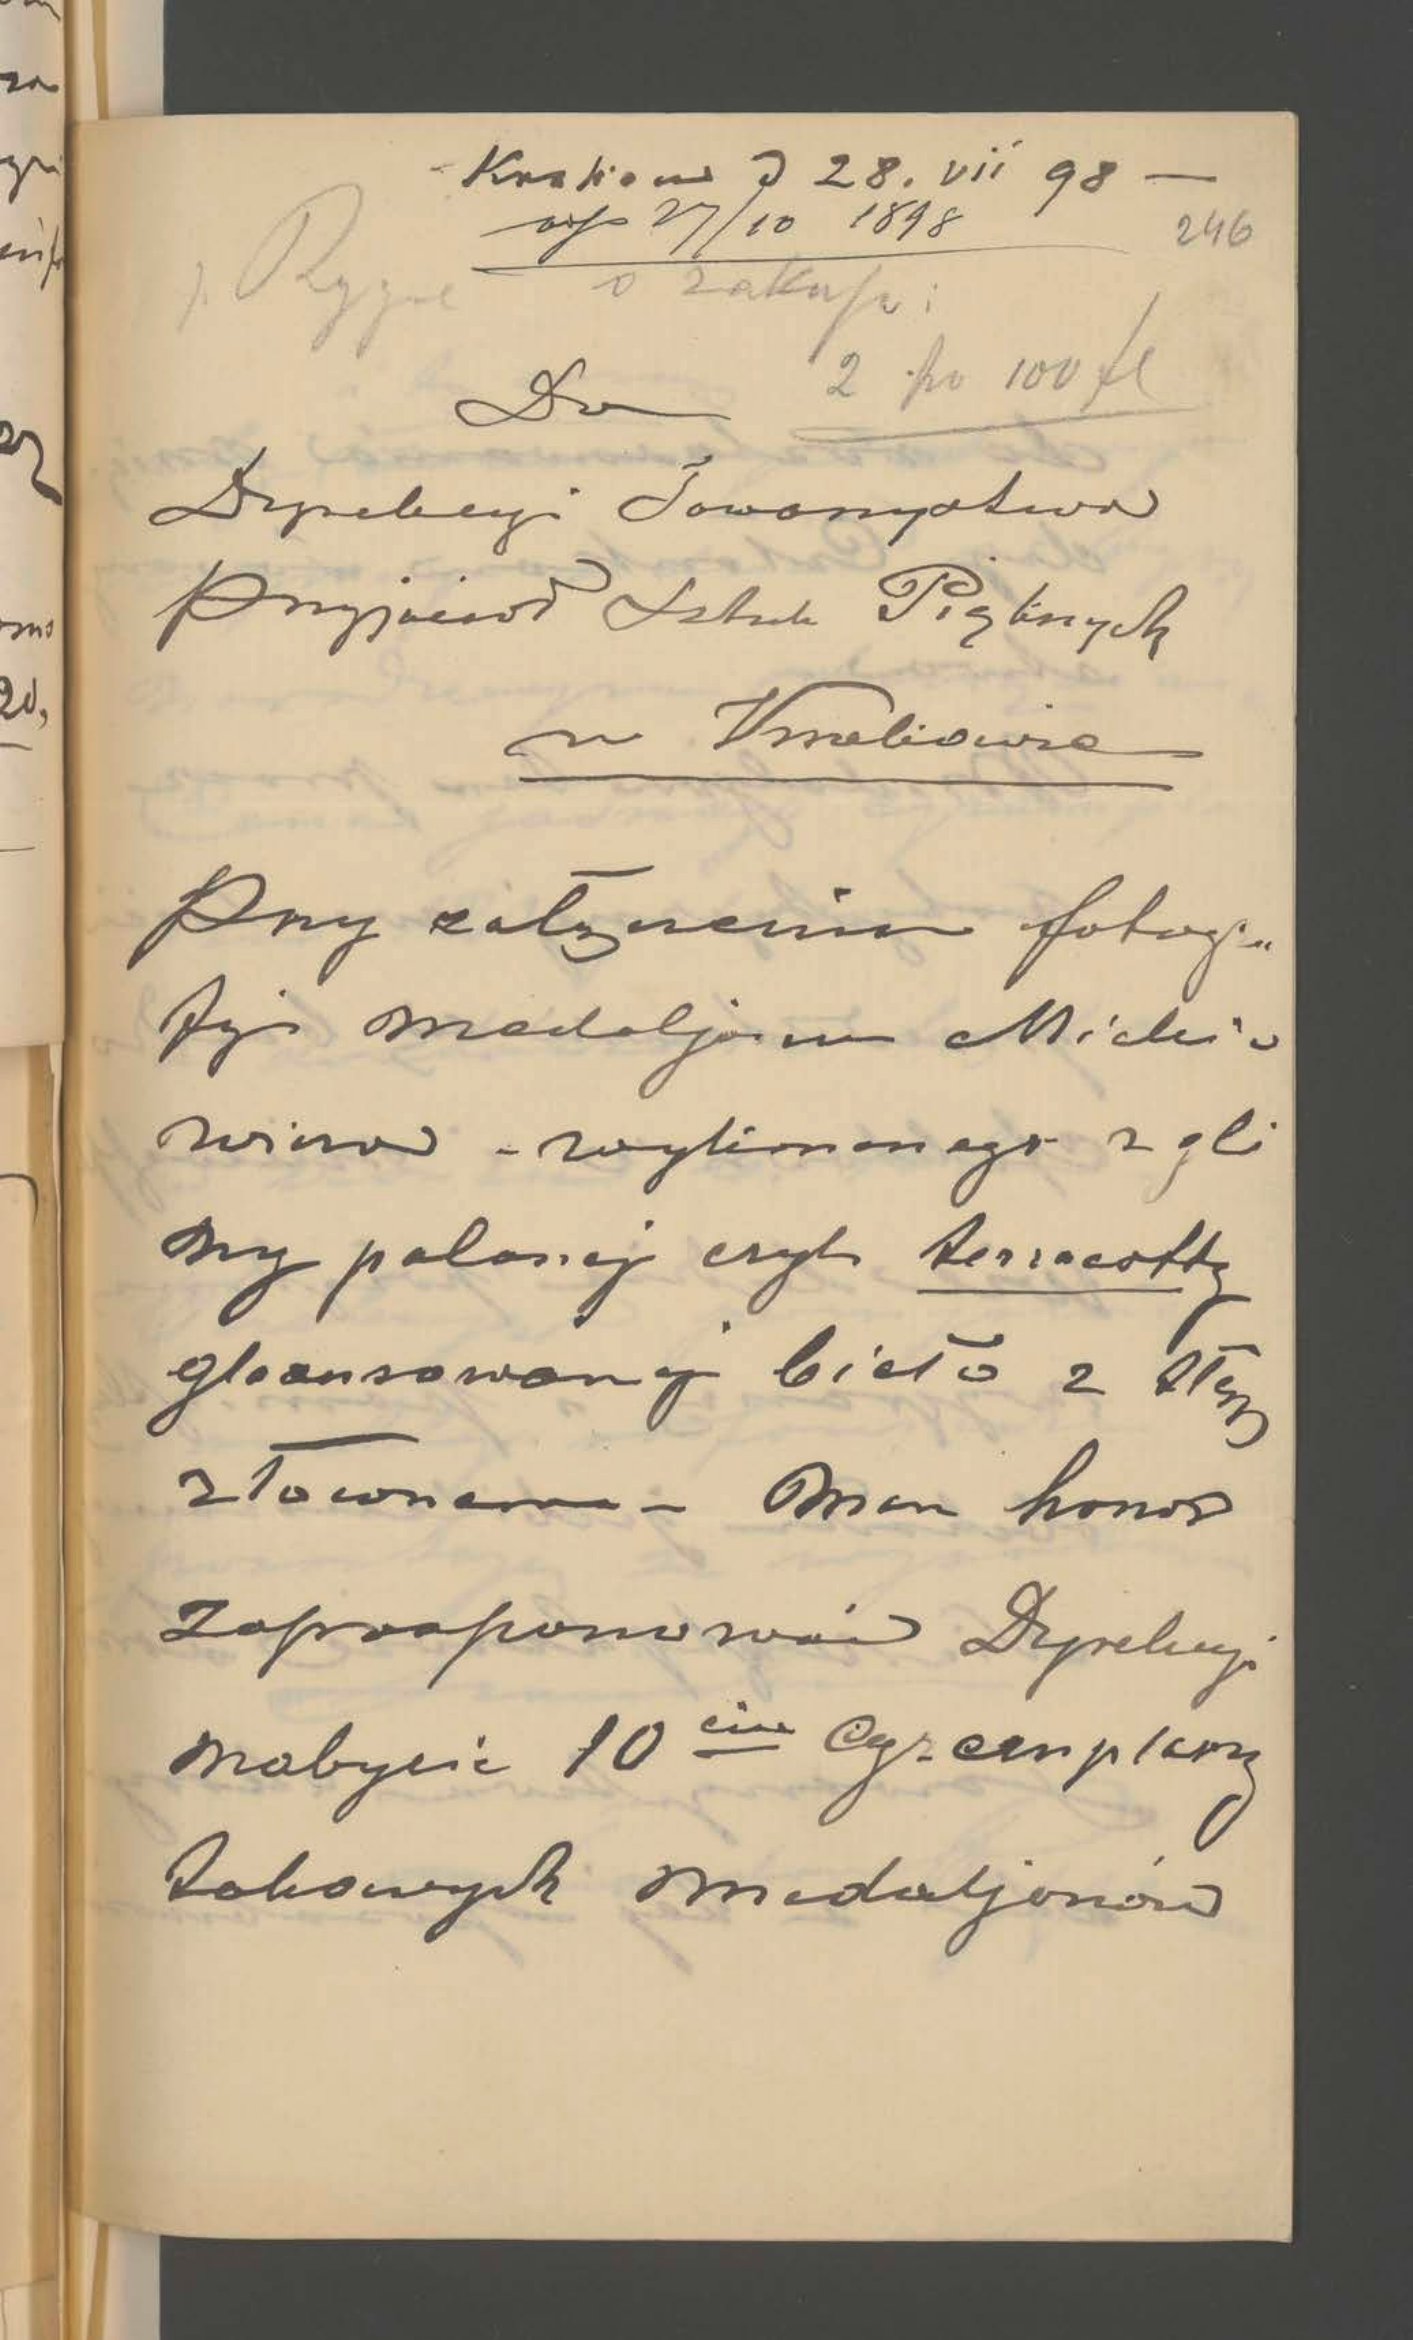 Kraków d 28. vii 98 —
odp 27/10 1898
246
p. Rygie o zakup:
2 po 100 fl
Do
Dyrekcyi Towarzystwa
Przyjaciół Sztuk Pięknych
w Krakowie
Przy załączeniu fotogr„
fyi medaljonu Mickie
wicza - wykonanego z gli
ny palonej czyli terracotty
glazurowanej biało z tłem
złoconem - Mam honor
zaproponować Dyrekcyi
nabycie 10 ciu egzemplarzy
takowych medaljonów